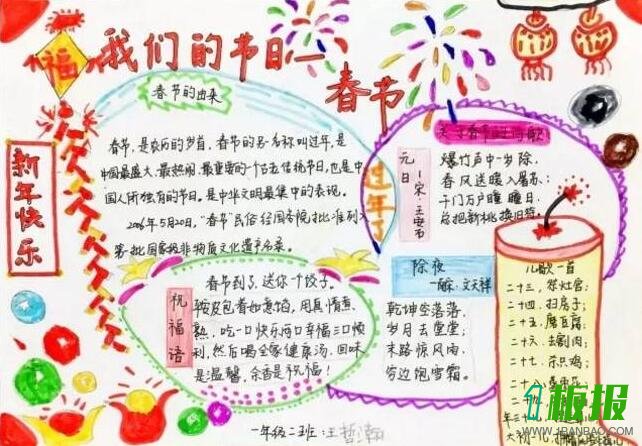 福
我们的节日—
春节
新年快乐
春节的由来
春节,是农历的岁首,春节的另一名称叫过年,是
中国最盛大、最热闹、最重要的个古老传统节日,也是中
国人所独有的节日。是中华文明最集中的表现。
2006年5月20日,"春节"民俗经国务院批准列入
第一批国家级非物质文化遗产名录。
过年了
关于春节的诗歌
元日
—宋·王安石
爆竹声中一岁除,
春风送暖入屠苏;
千门万户曈曈日,
总把新桃换旧符。
祝福语
春节到了,送你个饺子。
用真情煮
熟,吃一口快乐两口幸福三口顺
利,然后喝全家健康汤,回味
是温馨,余香是祝福!
除夜
文天祥
乾坤空落落,
岁月去堂堂;
末路惊风雨,
穷边饱雪霜。
儿歌一首
二十三,祭灶官;
二十四,扫房子;
二十五,磨豆腐;
二十六,去割肉;
二十七,杀只鸡;
二十八
一年级二班:王
板报
WWW.1BANBAO.COM